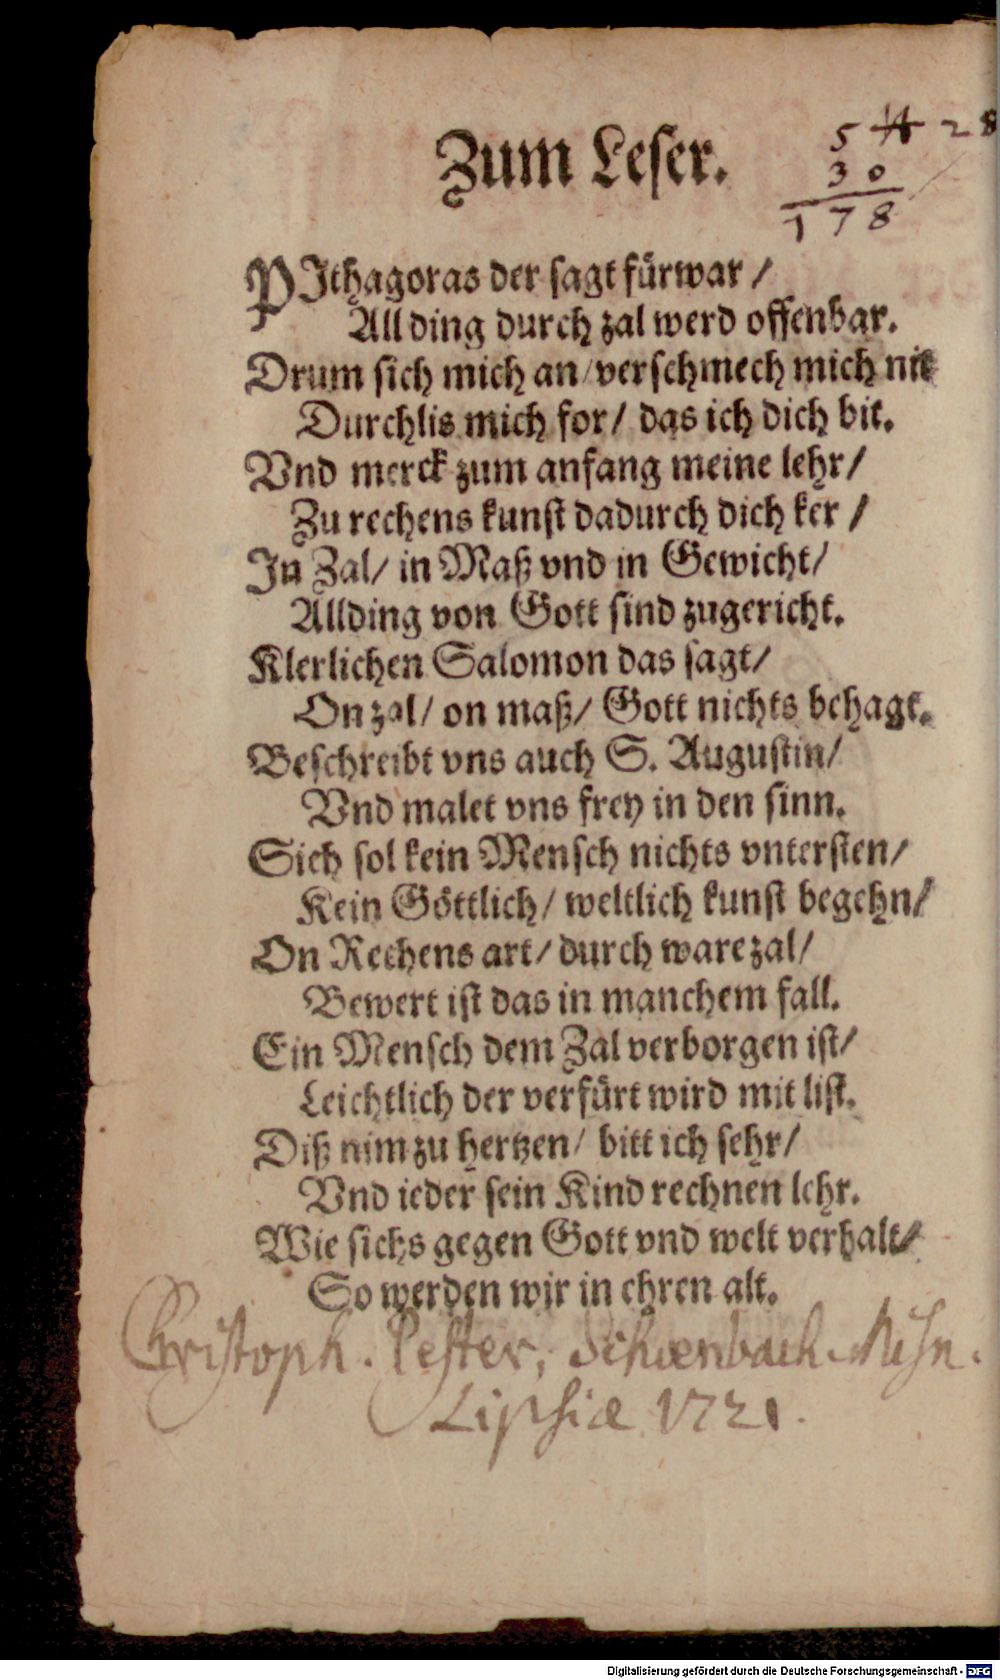 Zum Leser.
5 28
30
178
PIthagoras der sagt fürwar /
All ding durch zal werd offenbar.
Drum sich mich an / verschmech mich nit
Durchlis mich for / das ich dich bit.
Vnd merck zum anfang meine lehr /
Zu rechens kunst dadurch dich ker /
In Zal / in Maß vnd in Gewicht /
Allding von Gott sind zugericht.
Klerlichen Salomon das sagt /
On zal / on maß / Gott nichts behagt.
Beschreibt vns auch S. Augustin /
Vnd malet vns frey in den sinn.
Sich sol kein Mensch nichts vntersten /
Kein Göttlich / weltlich kunst begehn /
On Rechens art / durch ware zal /
Bewert ist das in manchem fall.
Ein Mensch dem Zal verborgen ist /
Leichtlich der verfürt wird mit list.
Diß nim zu hertzen / bitt ich sehr /
Vnd ieder sein Kind rechnen lehr.
Wie sichs gegen Gott vnd welt verhalt /
So werden wir in ehren alt.
Christoph. Pester, Schoenbach. Misn.
Lipsiæ 1721.
Digitalisierung gefördert durch die Deutsche Forschungsgemeinschaft - DFG